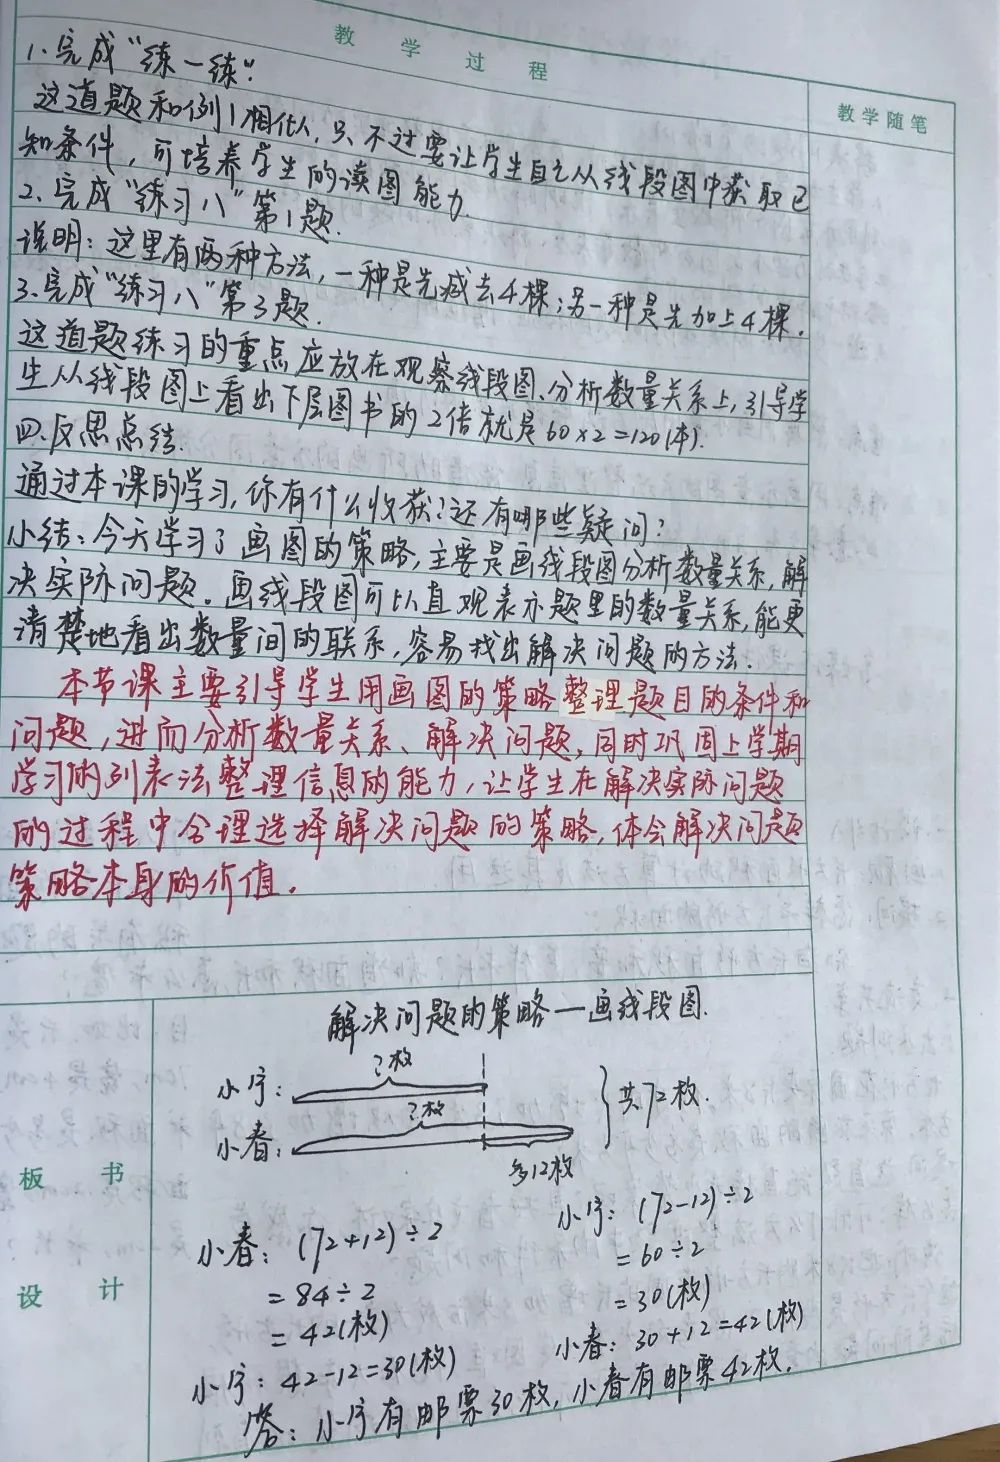 教学过程
教学随笔
1.完成“练一练”.
这道题和例1相似，只不过要让学生自己从线段图中获取已
知条件，可培养学生的读图能力.
2.完成“练习八”第1题.
说明：这里有两种方法，一种是先减去4棵；另一种是先加上4棵.
3.完成“练习八”第3题.
这道题练习的重点应放在观察线段图、分析数量关系上，引导学
生从线段图上看出下层图书的2倍就是60×2=120(本).
四.反思总结.
通过本课的学习，你有什么收获？还有哪些疑问？
小结：今天学习了画图的策略，主要是画线段图分析数量关系，解
决实际问题。画线段图可以直观表示题里的数量关系，能更
清楚地看出数量间的联系，容易找出解决问题的方法.
本节课主要引导学生用画图的策略整理题目的条件和
问题，进而分析数量关系、解决问题，同时巩固上学期
学习的列表法整理信息的能力，让学生在解决实际问题
的过程中合理选择解决问题的策略，体会解决问题
策略本身的价值.
板书
设计
解决问题的策略—画线段图.
?枚
小宁:
?枚
小春:
共72枚.
多12枚
小春: (72+12)÷2
=84÷2
=42(枚)
小宁: 42-12=30(枚)
小宁: (72-12)÷2
=60÷2
=30(枚)
小春: 30+12=42(枚)
答: 小宁有邮票30枚，小春有邮票42枚.